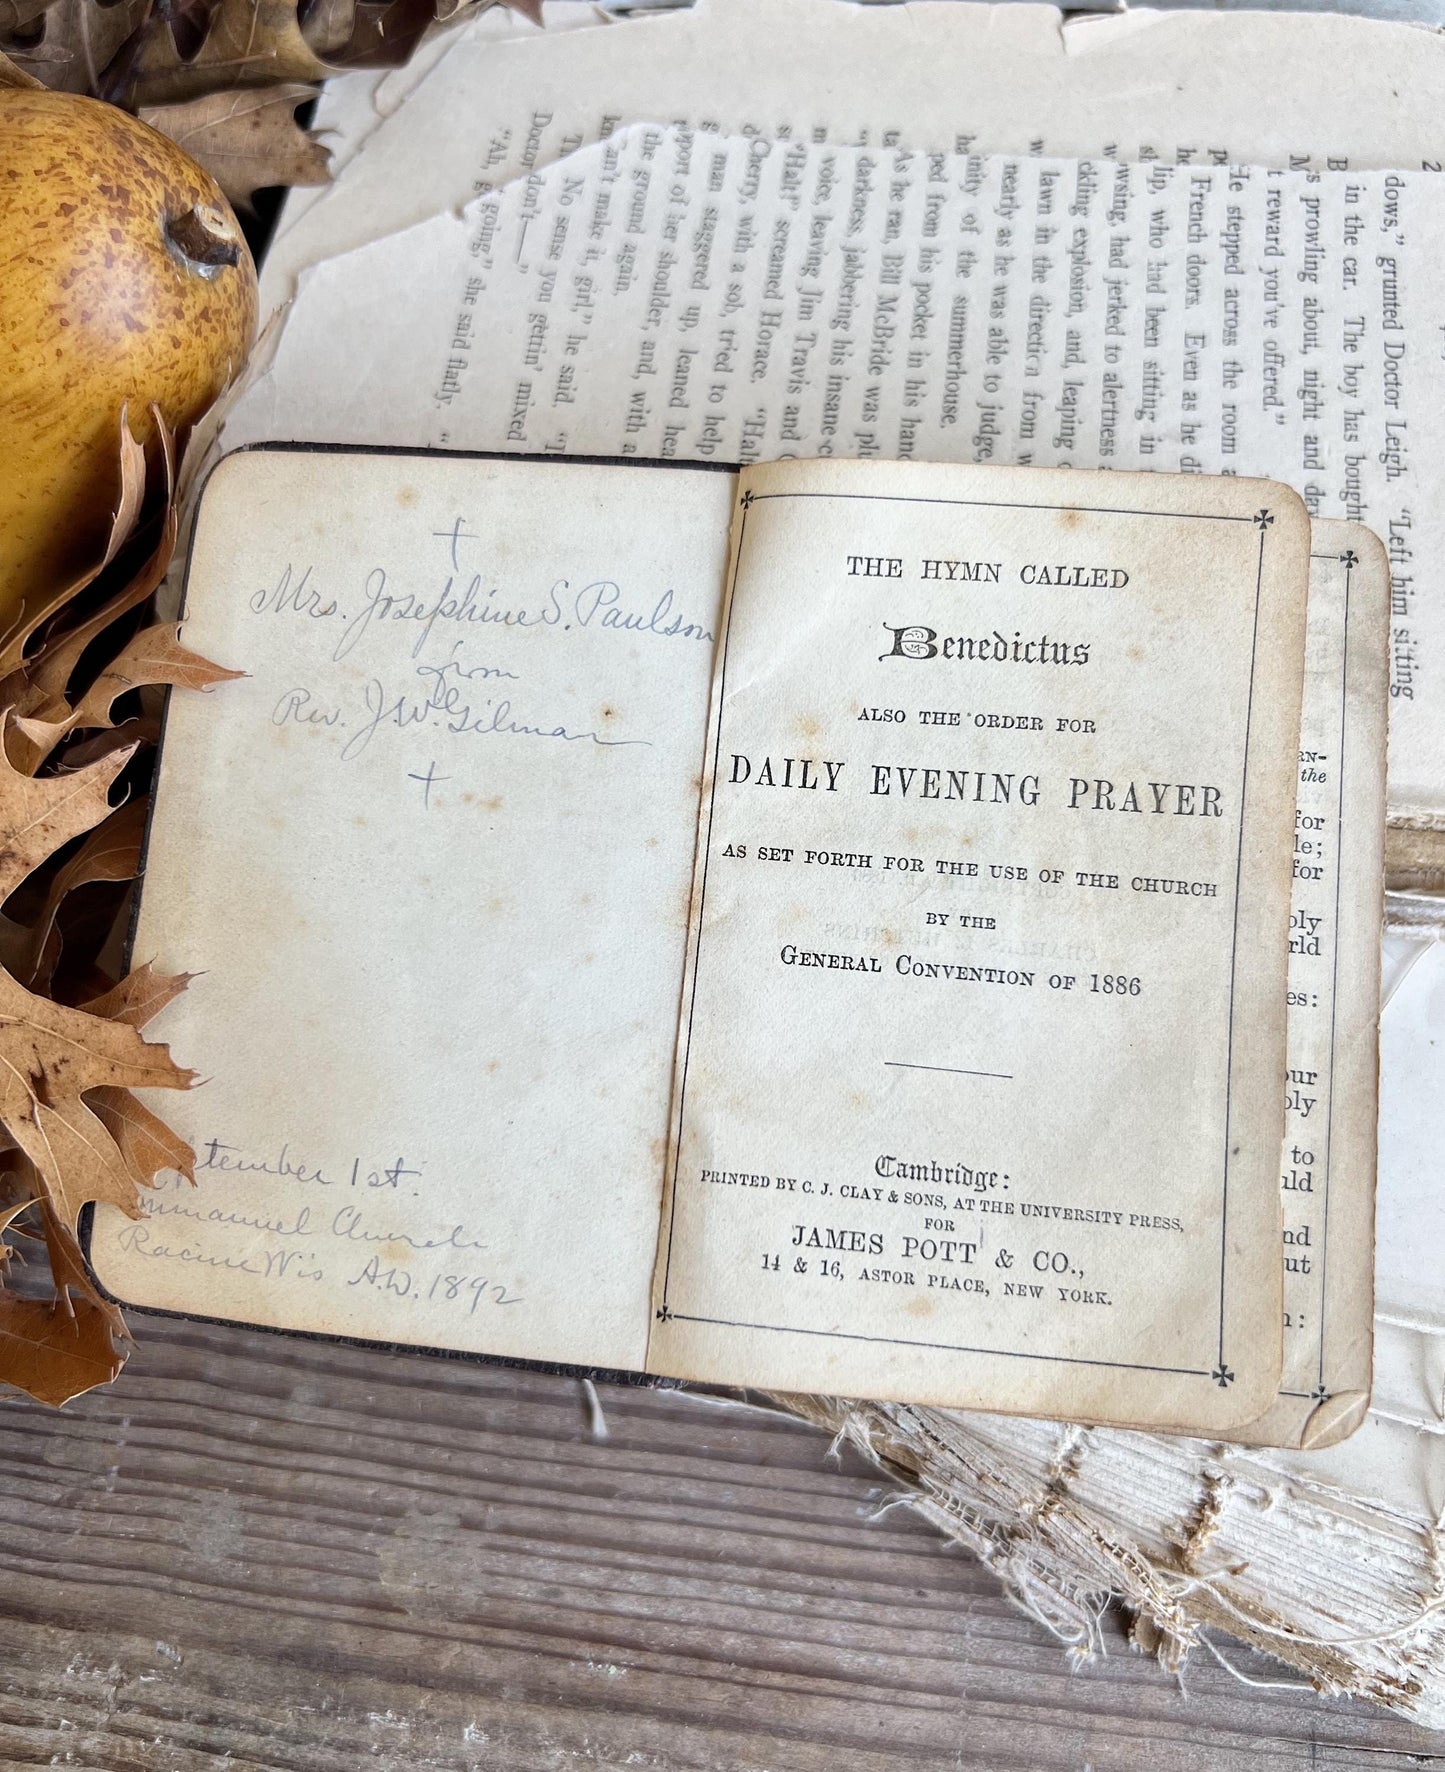 Mrs. Josephine S. Paulson
from
Rev. J. W. Gilman
tember 1st.
mmanuel Church
Racine Wis A.D. 1892
THE HYMN CALLED
Benedictus
ALSO THE ORDER FOR
DAILY EVENING PRAYER
AS SET FORTH FOR THE USE OF THE CHURCH
BY THE
GENERAL CONVENTION OF 1886
Cambridge:
PRINTED BY C. J. CLAY & SONS, AT THE UNIVERSITY PRESS,
FOR
JAMES POTT & CO.,
14 & 16, ASTOR PLACE, NEW YORK.
RN-
the
for
le;
for
oly
rld
es:
our
oly
to
uld
nd
ut
n:
2
dows," grunted Doctor Leigh. "Left him sitting
in the car. The boy has bought
s prowling about, night and day
t reward you've offered."
He stepped across the room a
French doors. Even as he di
lip, who had been sitting in
wsing, had jerked to alertness a
ckling explosion, and, leaping
lawn in the direction from w
nearly as he was able to judge,
inity of the summerhouse.
ped from his pocket in his hand
As he ran, Bill McBride was plu
darkness, jabbering his insane c
voice, leaving Jim Travis and
"Halt" screamed Horace. "Halt
Cherry, with a sob, tried to help
man staggered up, leaned hea
pport of ier shoulder, and, with a
the ground again.
an't make it, girl," he said. "I
No sense you gettin' mixed
Doctor don't——"
"Ah, g' going," she said flatly. "